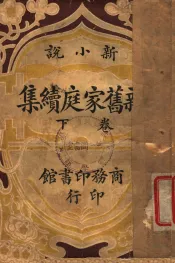 新小説
新舊家庭續集
卷下
商務印書館
印行